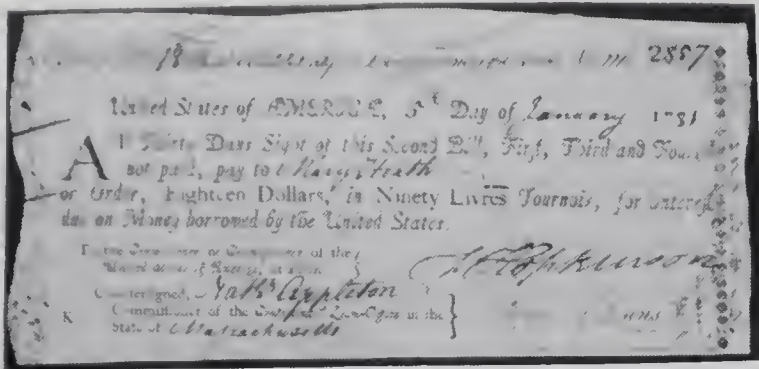 18 2857
United States of AMERICA, 5th Day of January 1781
At Thirty Days Sight of this Second Bill, First, Third and Fourth
not paid, pay to Mary Heath
or Order, Eighteen Dollars, in Ninety Livres Tournois, for Interest
due on Money borrowed by the United States.
To the Commissioner or Commissioners of the
United States of America, at Paris.
F Hopkinson
Countersigned, Nath Appleton
Commissioner of the Continental Loan-Office in the
K State of Massachusetts